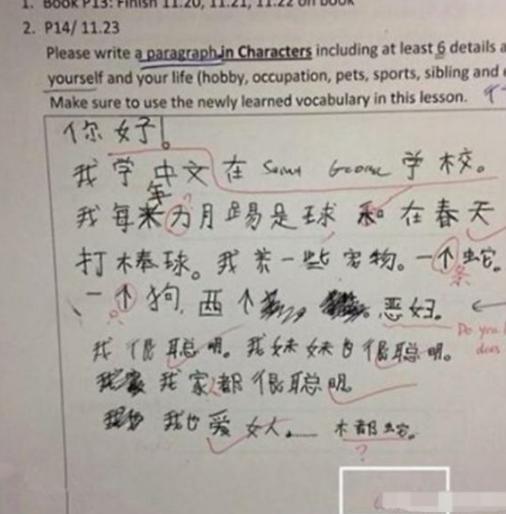 1. Book P13: Finish 11.20, 11.21, 11.22 on book
2. P14/ 11.23
Please write a paragraph in Characters including at least 6 details a
yourself and your life (hobby, occupation, pets, sports, sibling and
Make sure to use the newly learned vocabulary in this lesson.
你好!
我学中文在 George 学校。
年
我每来为月踢是球和在春天
打棒球。我养一些宠物。一个蛇。
条
一个狗,西个 恶妇。
Do you
does
我很聪明。我妹妹自很聪明。
我家都很聪明
我也爱女人。 木都蛇。
?